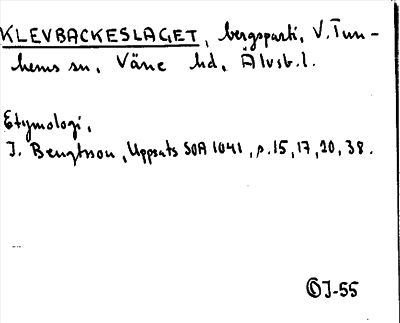 KLEVBACKESLAGET, bergsparti, V. Tun-
hems sn, Väne hd, Älvsb. l.
Etymologi.
J. Bengtsson, Uppsats SOA 1041, p. 15, 17, 20, 38.
J-55